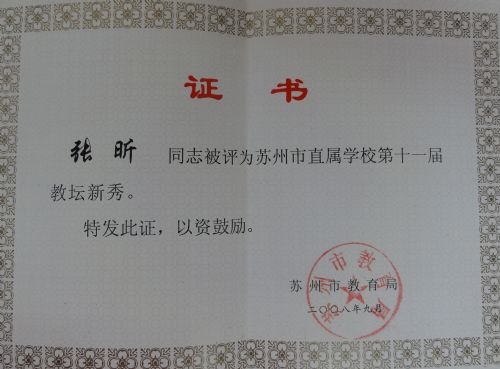 证书
张昕 同志被评为苏州市直属学校第十一届
教坛新秀。
特发此证，以资鼓励。
苏州市教育局
二〇〇八年九月
苏州市教育局